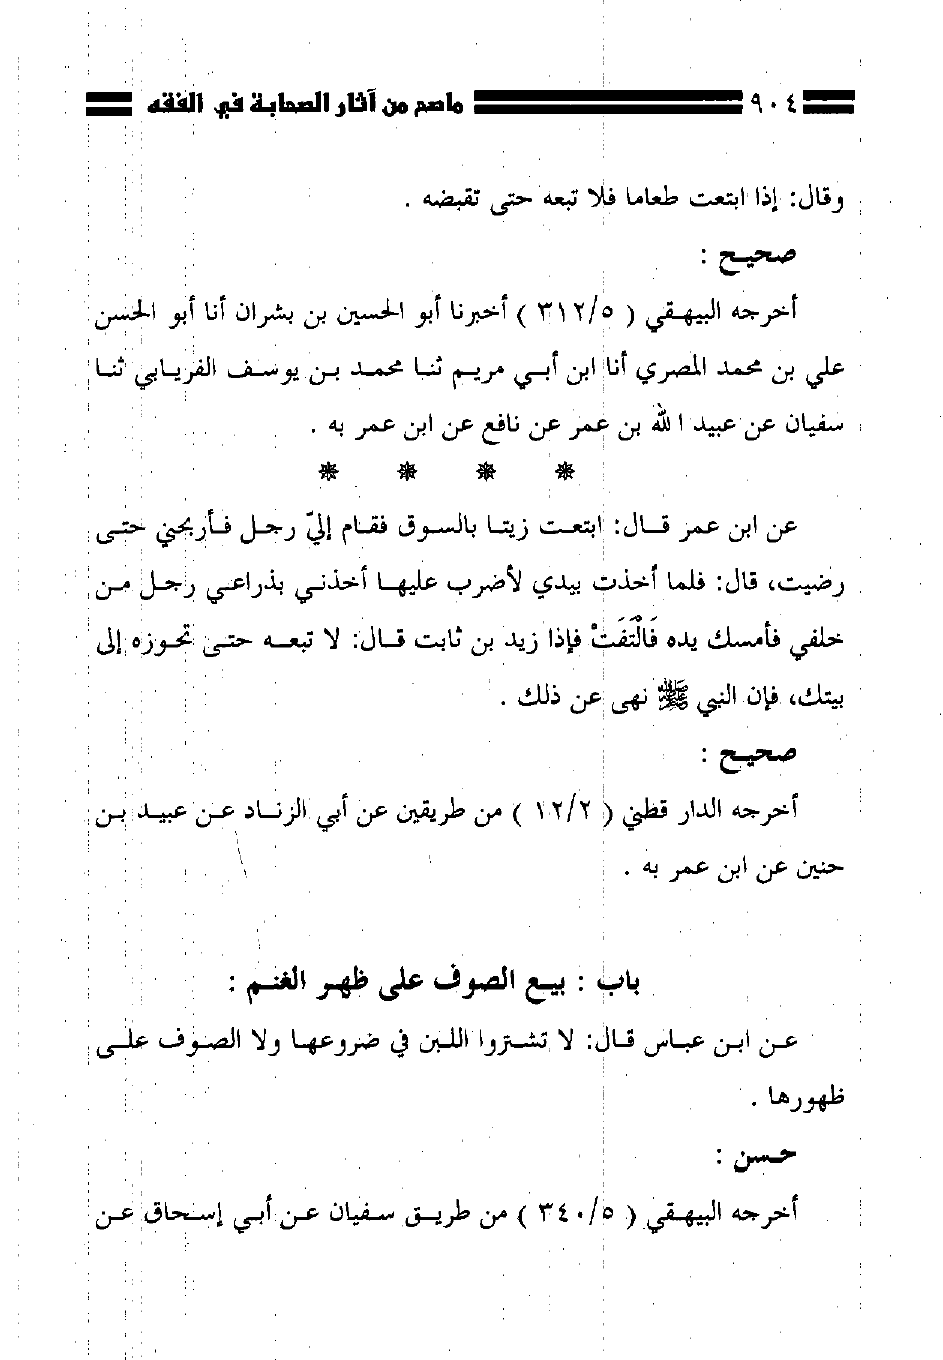 ٩٠٤ ماصح من آثار الصحابة في الفقه
وقال: إذا ابتعت طعاما فلا تبعه حتى تقبضه .
صحيح :
أخرجه البيهقي ( ٣١٢/٥ ) أخبرنا أبو الحسين بن بشران أنا أبو الحسن
علي بن محمد المصري أنا ابن أبي مريم ثنا محمد بن يوسف الفريابي ثنا
سفيان عن عبيد الله بن عمر عن نافع عن ابن عمر به .
❋ ❋ ❋ ❋
عن ابن عمر قال: ابتعت زيتا بالسوق فقام إليّ رجل فأربحني حتى
رضيت، قال: فلما أخذت بيدي لأضرب عليها أخذني بذراعي رجل من
خلفي فأمسك يدي فَالْتَفَتْ فإذا زيد بن ثابت قال: لا تبعه حتى تحوزه إلى
بيتك، فإن النبي ﷺ نهى عن ذلك .
صحيح :
أخرجه الدار قطني ( ١٢/٢ ) من طريقين عن أبي الزناد عن عبيد بن
حنين عن ابن عمر به .
باب : بيع الصوف على ظهر الغنم :
عن ابن عباس قال: لا تشتروا اللبن في ضروعها ولا الصوف على
ظهورها .
حسن :
أخرجه البيهقي ( ٣٤٠/٥ ) من طريق سفيان عن أبي إسحاق عن